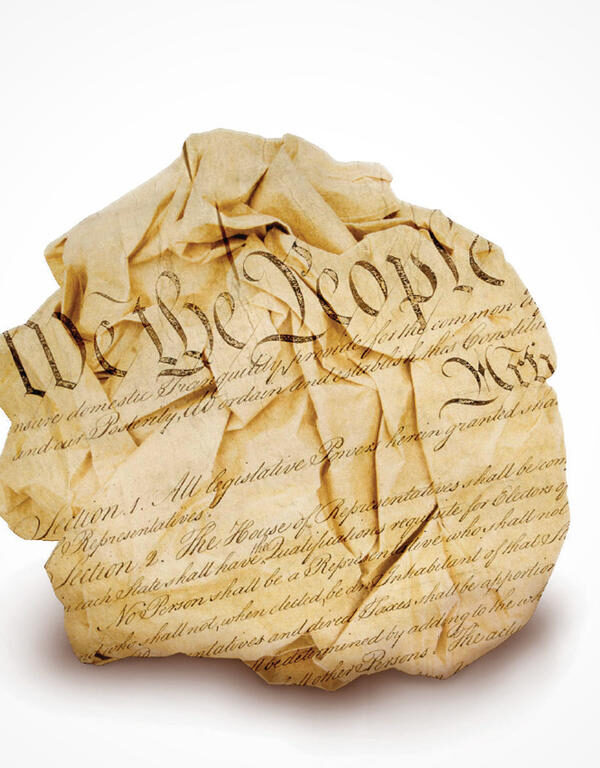 We the People
insure domestic Tranquility, provide for the common
and our Posterity, do ordain and establish this Constitu
Arti
Section. 1. All legislative Powers herein granted sha
Representatives.
Section. 2. The House of Representatives shall be com
each State shall have the Qualifications requisite for Electors o
No Person shall be a Representative who shall not
who shall not, when elected, be an Inhabitant of that
entatives and direct Taxes shall be apportion
ll be determined by adding to the wh
all other Persons. The actu